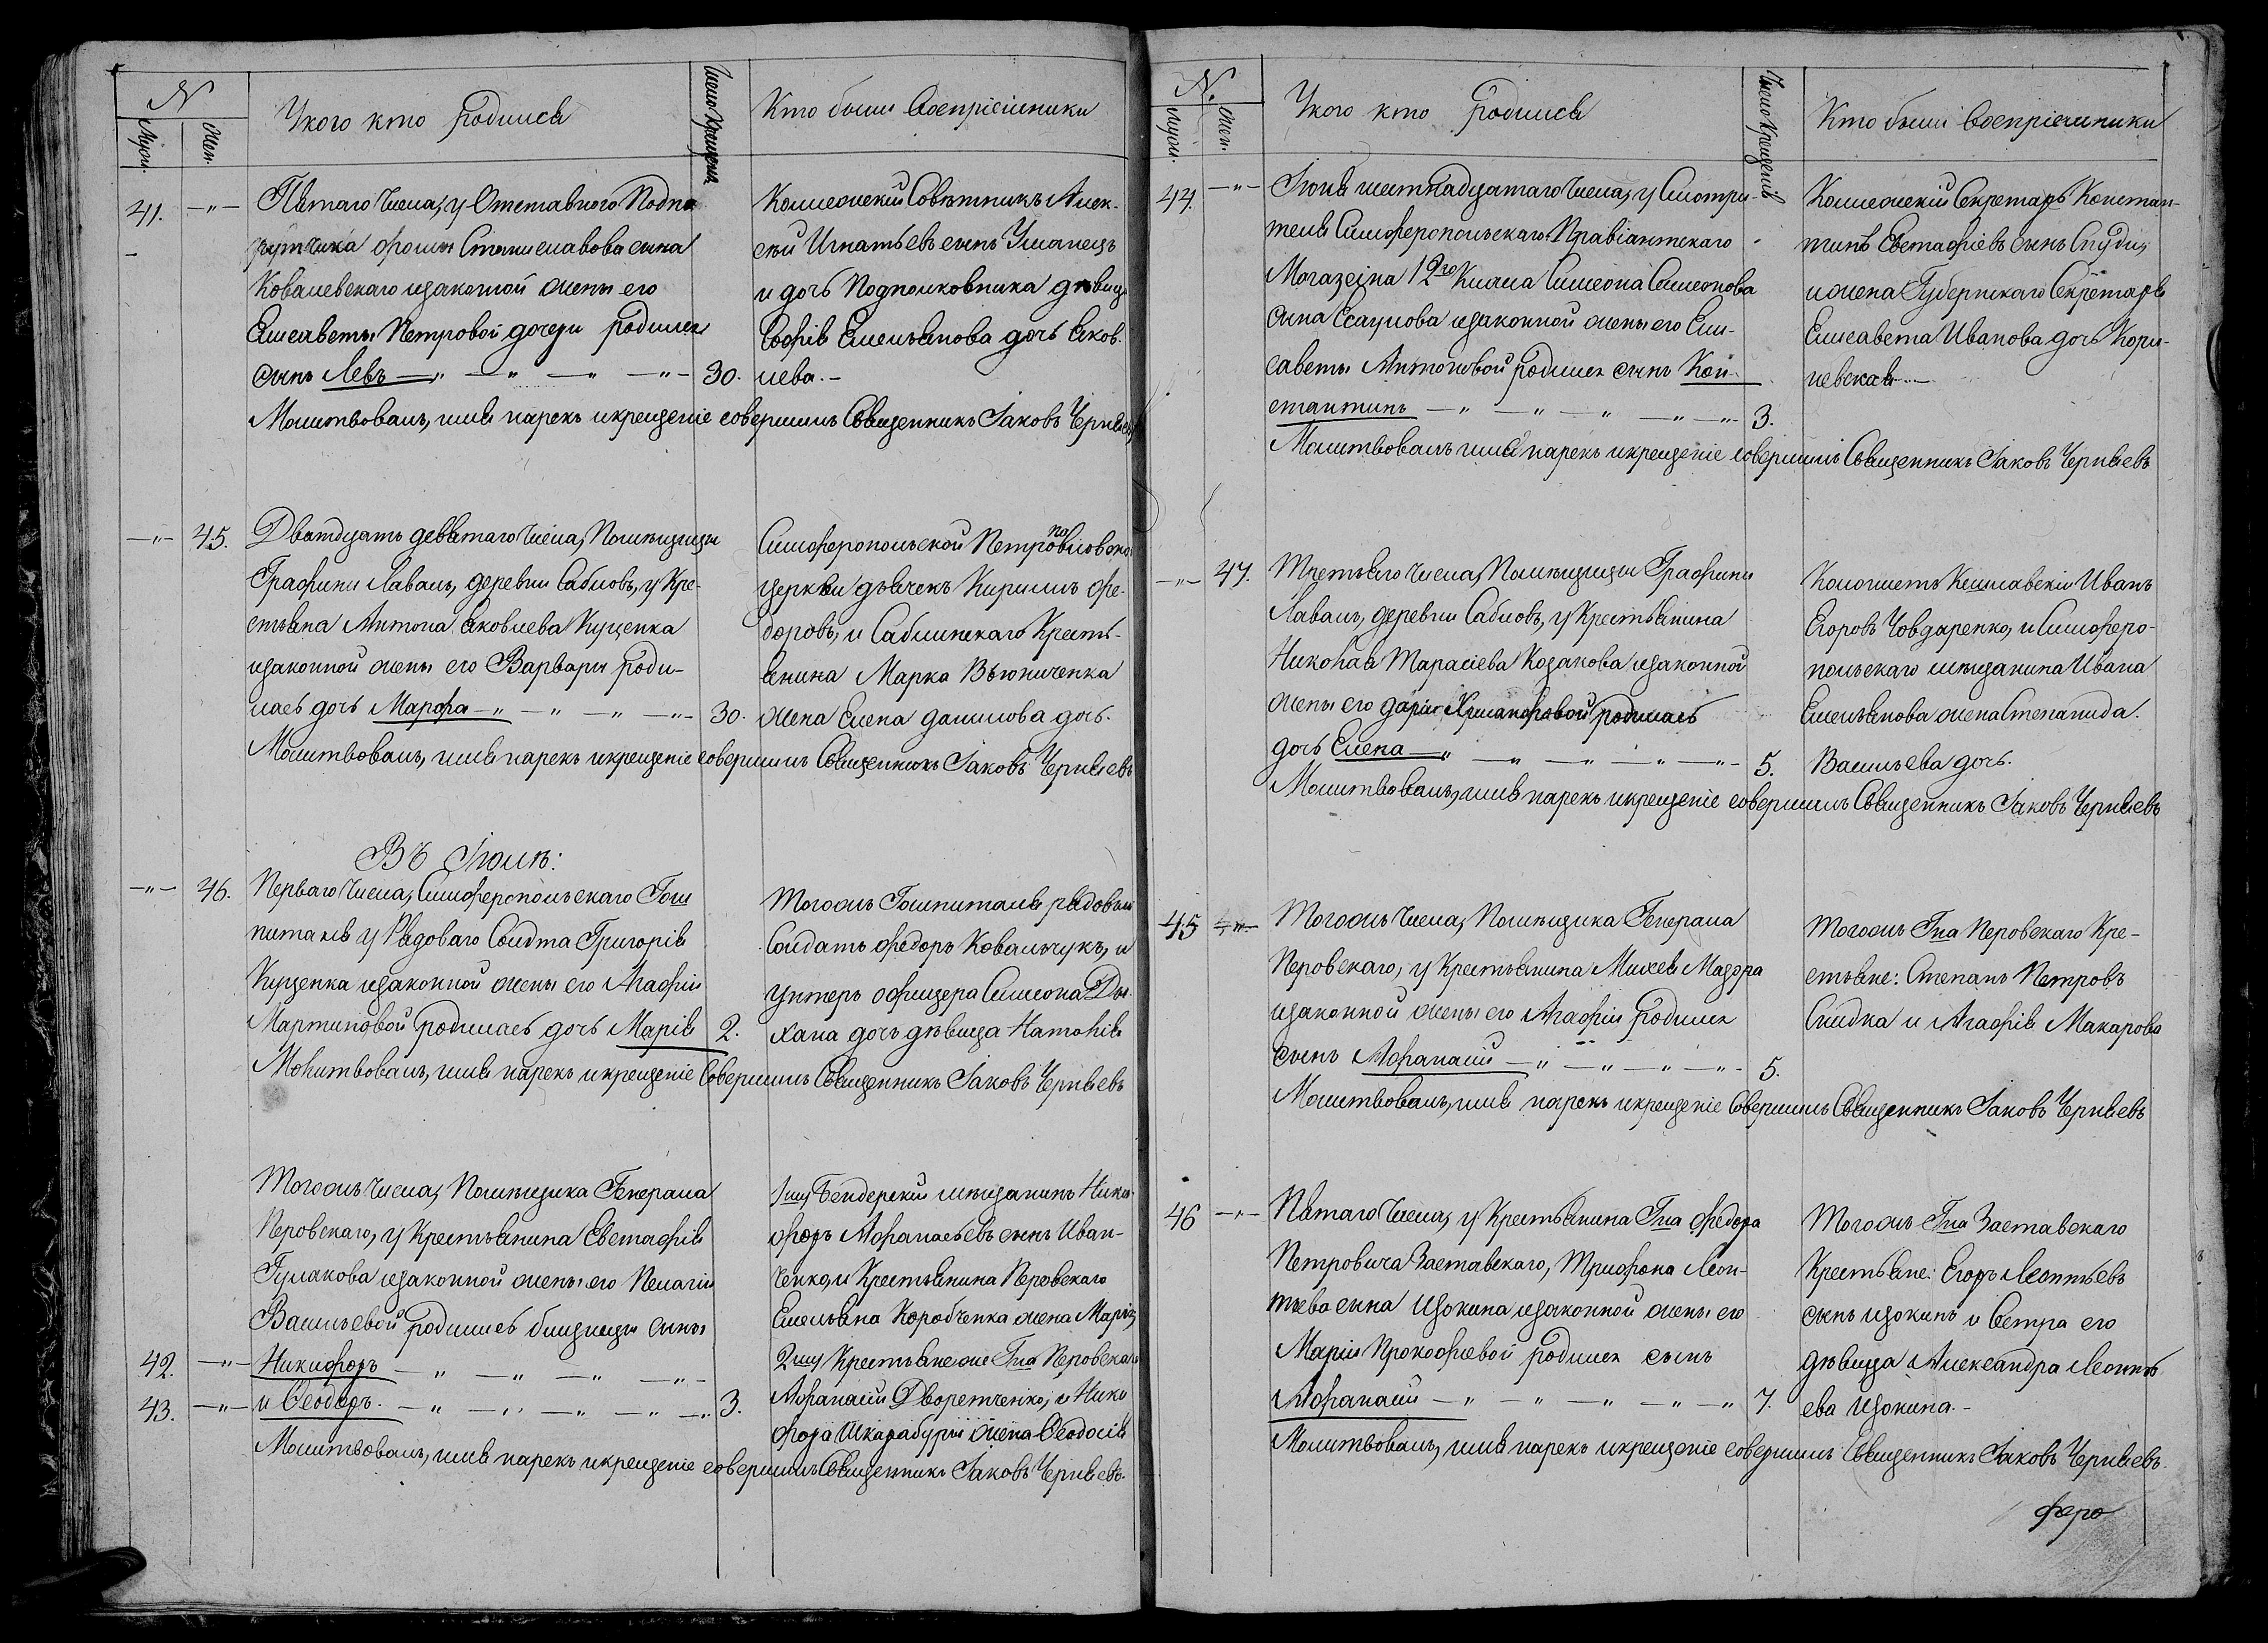 N
Муж.
Жен.
У кого кто родился
Число Крещенiя
Кто были Воспрiемники
41. —"— Пятаго Числа, у Отставного Подпо
ручика Фомы Станиславова сына
Ковалевскаго изаконной жены его
Елисаветы Петровой дочери родился
сынъ Левъ —"— —"— —"— —"— 30.
Коллежскiй Совѣтникъ Алек-
сѣй Игнатьевъ сынъ Уманецъ
и дочь Подполковника дѣвица
Софiя Емельянова дочь Яков-
лева. —
Молитвовалъ, имя нарекъ икрещенiе совершилъ Священникъ Iаковъ Чернявъ
—"— 45. Дватдцать девятаго Числа, Помѣщицы
Графини Лаваль, деревни Сабловъ, у Кре-
стьяна Антона Яковлева Куценка
изаконной жены его Варвары роди-
лась дочь Марфа —"— —"— —"— —"— 30.
Симферопольской Петропавловско
церкви дьячекъ Кириллъ Фе-
доровъ, и Саблинскаго Кресть-
янина Марка Вьюниченка
жена Елена данилова дочь.
Молитвовалъ, имя нарекъ икрещенiе совершилъ Священникъ Iаковъ Чернявъ
Въ Iюлѣ:
—"— 46. Перваго Числа, Симферопольскаго Гош
питаля у Рядоваго Солдта Григорiя
Куценка изаконной жены его Агафiи
Мартиновой родилась дочь Марiя 2.
Тогожъ Гошпиталя рядовый
Солдатъ Федоръ Ковальчукъ, и
унтеръ офицера Симеона Ды-
хана дочь дѣвица Наталiя
Молитвовалъ, имя нарекъ икрещенiе Совершилъ Священникъ Iаковъ Чернявъ
Тогожъ Числа, Помѣщика Генерала
Перовскаго, у Крестьянина Евстафiя
Гулакова изаконной жены его Пелагiи
Васильевой родились близнецы сыны
42. —"— Никифоръ —"— —"— —"— —"—
43. —"— и Ѳеодоръ. —"— —"— —"— —"— 3.
1му Бендерскiй мѣщанинъ Ники-
форъ Афанасьевъ сынъ Иван-
ченко, и Крестьянина Перовскаго
Емельяна Коробченка жена Марiя,
2му Крестьяне же Гна Перовскаго
Афанасiй Дворетченко, и Ники
фора Шкарабуры жена Ѳеодосiя
Молитвовалъ, имя нарекъ икрещенiе совершилъ Священникъ Iаковъ Чернявъ.
N.
Муж.
Жен.
У кого кто родился
Число Крещенiя
Кто были Воспрiемники
44. —"— Iюня шестнадцатаго Числа, у Смотри-
теля Симферопольскаго Правiантскаго
Магазеiна 12го Класа Симеона Симеонова
сына Есаулова изаконной жены его Ели-
саветы Антоновой родился сынъ Кон-
стантинъ —"— —"— —"— —"— —"— 3.
Коллежскiй Секретарь Констан-
тинъ Евстафiевъ сынъ Спуди,
ижена Губернскаго Секретаря
Елисавета Иванова дочь Кори-
невская —
Молитвовалъ имя нарекъ икрещенiе совершилъ Священникъ Iаковъ Чернявъ
—"— 47. Третьяго Числа, Помѣщицы Графини
Лаваль, деревни Сабловъ, у Крестьянина
Николая Тарасiева Козакова изаконной
жены его дарiи Хрисанфовой родилась
дочь Елена —"— —"— —"— —"— —"— 5.
Колонистъ Иванъ
Егоровъ Човдаренко, и Симферо-
польскаго мѣщанина Ивана
Емельянова жена Степанида.
Васильева дочь.
Молитвовалъ, имя нарекъ икрещенiе совершилъ Священникъ Iаковъ Чернявъ
45 —"— Тогожъ Числа, Помѣщика Генерала
Перовскаго, у Крестьянина Михея Маздра
изаконной жены его Агафiи родился
сынъ Афанасiй —"— —"— —"— —"— 5.
Тогожъ Гна Перовскаго Кре-
стьяне: Степанъ Петровъ
Скидка и Агафiя Макарова
Молитвовалъ, имя нарекъ икрещенiе Совершилъ Священникъ Iаковъ Чернявъ
46 —"— Пятаго Числа, у Крестьянина Гна Федора
Петровича Заставскаго, Трифона Леон-
тьева сына Щокина изаконной жены его
Марiи Прокофьевой родился сынъ
Афанасiй —"— —"— —"— —"— —"— 7.
Тогожъ Гна Заставскаго
Крестьяне: Егоръ Леонтьевъ
сынъ щокинъ и Сестра его
дѣвица Александра Леонть
ева щокина. —
Молитвовалъ, имя нарекъ икрещенiе совершилъ Священникъ Iаковъ Чернявъ.
феро